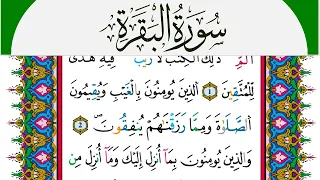 سُورَةُ الْبَقَرَةِ
الٓمّٓ ذٰلِكَ الْكِتٰبُ لَا رَيْبَ فِيْهِ هُدًى
لِّلْمُتَّقِيْنَ ۝١ الَّذِيْنَ يُؤْمِنُوْنَ بِالْغَيْبِ وَيُقِيْمُوْنَ
الصَّلٰوةَ وَمِمَّا رَزَقْنٰهُمْ يُنْفِقُوْنَ ۝٢
وَالَّذِيْنَ يُؤْمِنُوْنَ بِمَآ اُنْزِلَ اِلَيْكَ وَمَآ اُنْزِلَ مِنْ